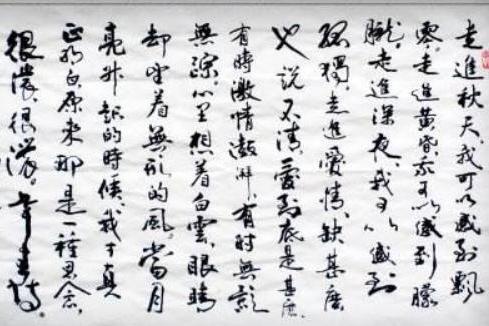 走進秋天,我可以感到飄
零。走進黄昏,我可以感到朦
朧。走進深夜,我可以感到
孤獨。走進愛情,缺甚麼
也説不清。愛到底是甚麼,
有時激情澎湃,有时無影
無踪。心里想着白雲,眼睛
却望着無形的風。當月
亮升起的時候,我才真
正明白原來那是一種思念,
很濃,很濃。